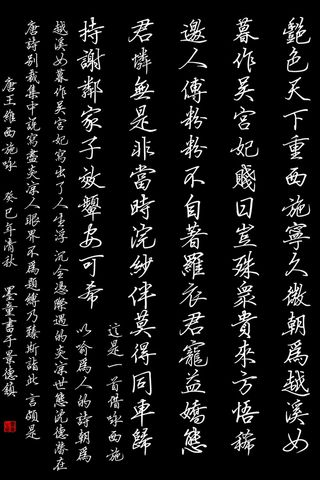 艷色天下重西施寧久微朝為越溪女
暮作吳宮妃賤日豈殊眾貴來方悟稀
邀人傅粉粉不自著羅衣君寵益嬌態
君憐無是非當時浣紗伴莫得同車歸
持謝鄰家子效顰安可希
這是一首借咏西施
以喻為人的詩朝為
越溪女暮作吳宮妃寫出了人生浮沉全憑際遇的炎涼世態沈德潛在
唐詩別裁集中說寫盡炎涼人眼界不為題縛乃臻斯詣此言頗是
唐王維西施咏 癸巳年清秋 墨童書于景德鎮